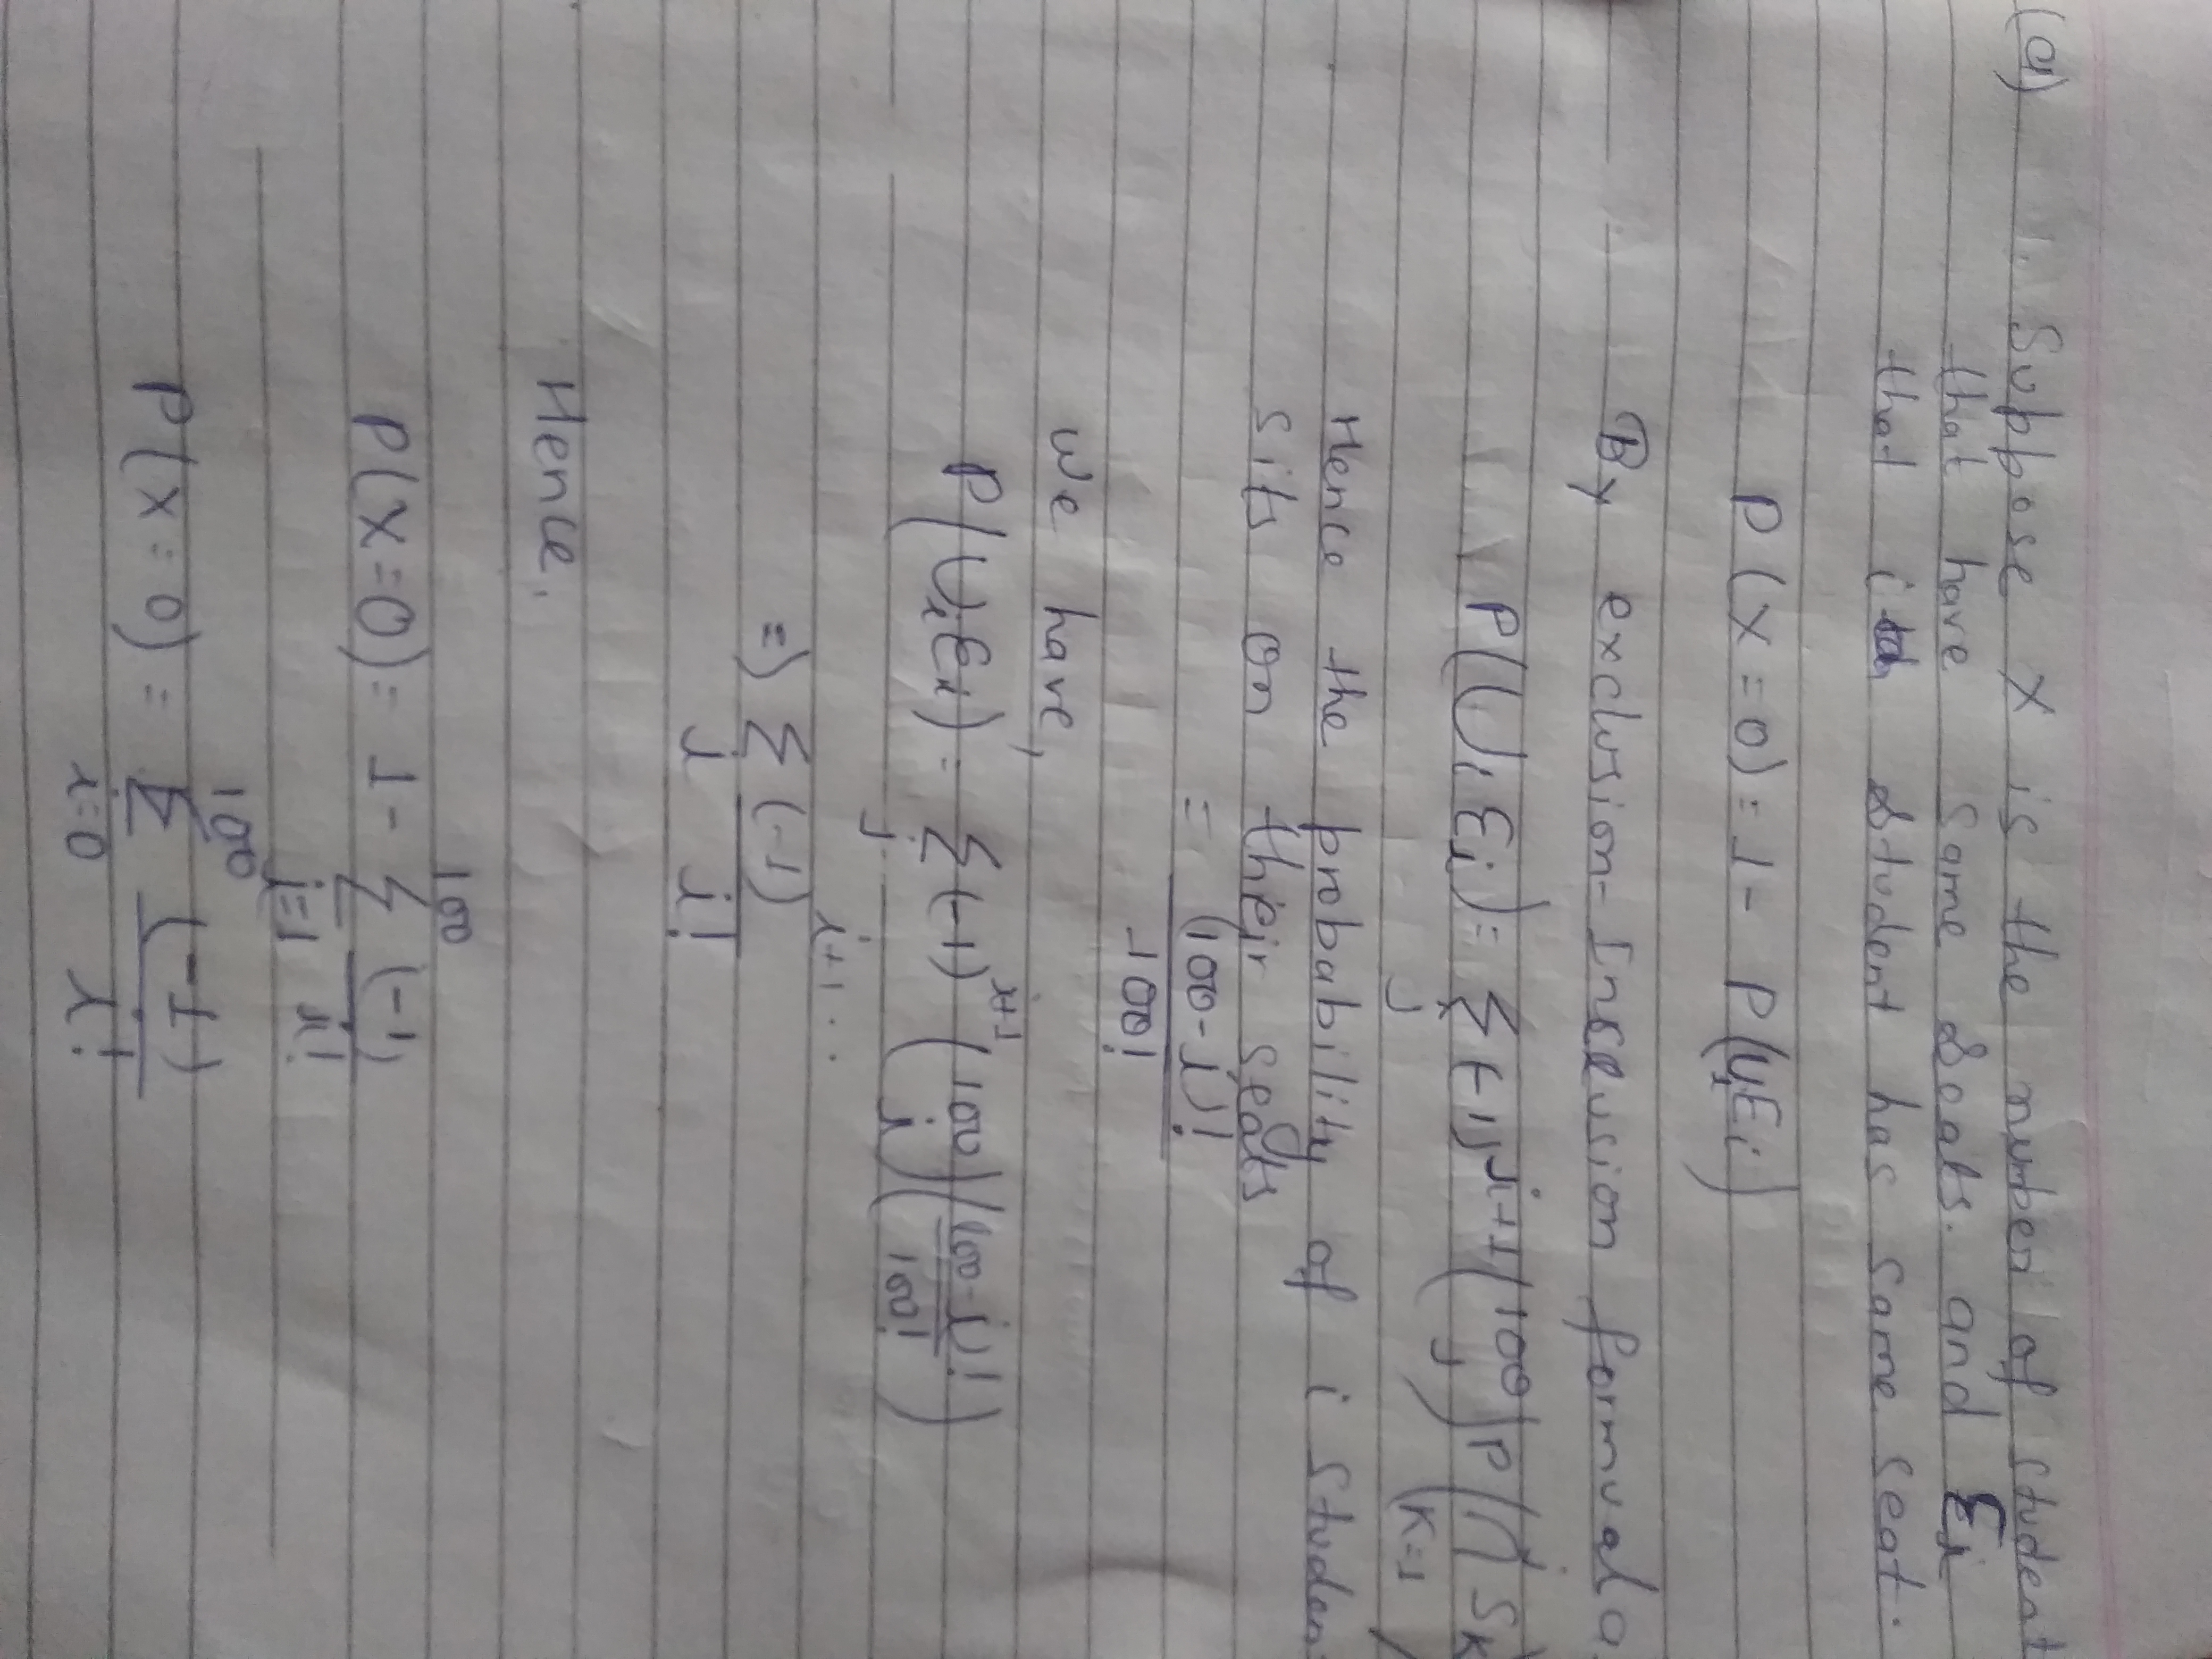 (a) 1. Suppose X is the number of student
that have same seats. and Ei
that ith student has same seat.
P(X=0) = 1 - P(UiEi)
By exclusion-Inclusion formuala
P(UiEi) = Σj (-1)^i+1 (100 j) P(∩ j K=1 SK)
Hence the probability of i studen
sits on their seats
= (100-i)! / 100!
We have,
P(UiEi) = Σj (-1)^i+1 (100 i) ((100-i)! / 100!)
=) Σi (-1)^i+1.. / i!
Hence,
P(X=0) = 1 - Σ 100 i=1 (-1) / i!
P(X=0) = Σ 100 i=0 (-1) / i!